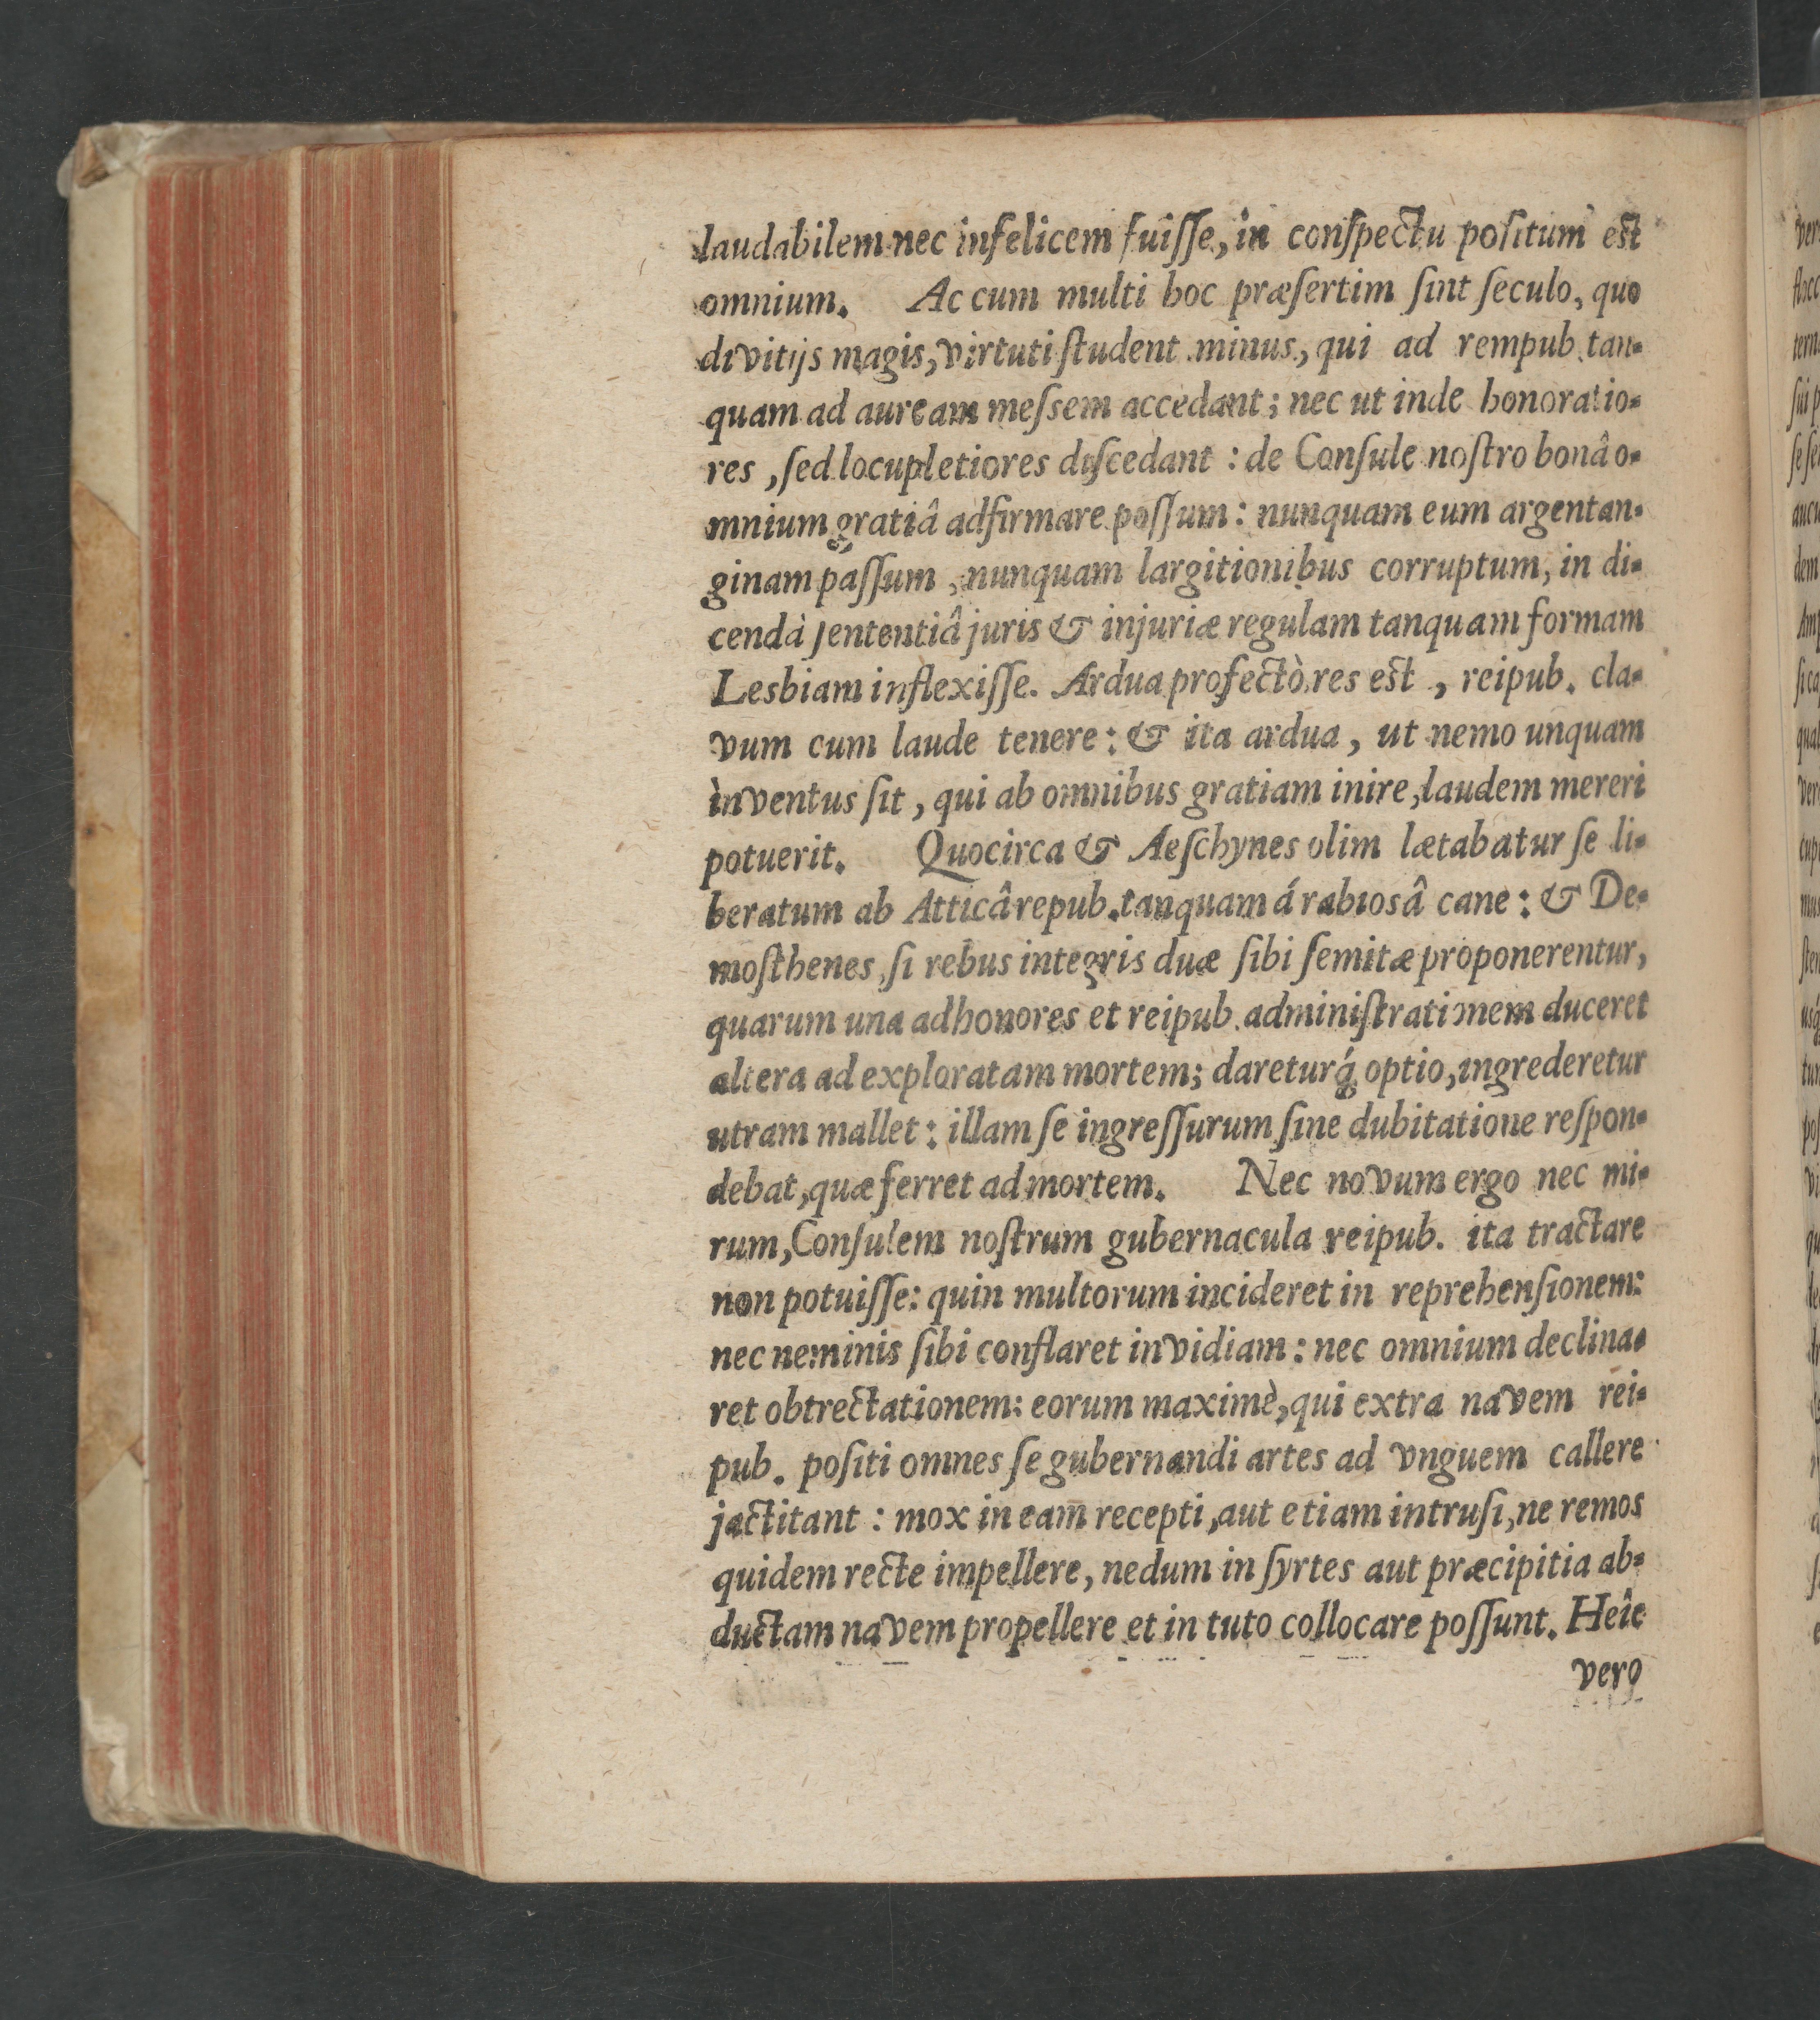 laudabilem nec infelicem fuiſſe, in conſpectu poſitum eſt
omnium. Ac cum multi hoc præſertim ſint ſeculo, quo
divitijs magis, virtuti ſtudent minus, qui ad rempub. tan-
quam ad auream meſsem accedant; nec ut inde honoratio-
res, ſed locupletiores diſcedant: de Conſule noſtro bonâ o-
mnium gratiâ adfirmare poſſum: nunquam eum argentan-
ginam paſſum, nunquam largitionibus corruptum, in di-
cendà ſententiâ juris & injuriæ regulam tanquam formam
Lesbiam inflexiſſe. Ardua profectò res eſt, reipub. cla-
vum cum laude tenere: & ita ardua, ut nemo unquam
inventus ſit, qui ab omnibus gratiam inire, laudem mereri
potuerit. Quocirca & Aeſchynes olim lætabatur ſe li-
beratum ab Atticâ repub. tanquam á rabiosâ cane: & De-
moſthenes, ſi rebus integris duæ ſibi ſemitæ proponerentur,
quarum una ad honores et reipub. adminiſtrationem duceret
altera ad exploratam mortem; dareturq́; optio, ingrederetur
utram mallet: illam ſe ingreſſurum ſine dubitatione reſpon-
debat, quæ ferret ad mortem. Nec novum ergo nec mi-
rum, Conſulem noſtrum gubernacula reipub. ita tractare
non potuiſſe: quin multorum incideret in reprehenſionem:
nec neminis ſibi conflaret invidiam: nec omnium declina-
ret obtrectationem: eorum maximè, qui extra navem rei-
pub. poſiti omnes ſe gubernandi artes ad vnguem callere
jactitant: mox in eam recepti, aut etiam intruſi, ne remos
quidem recte impellere, nedum in ſyrtes aut præcipitia ab-
ductam navem propellere et in tuto collocare poſſunt. Heîc
vero